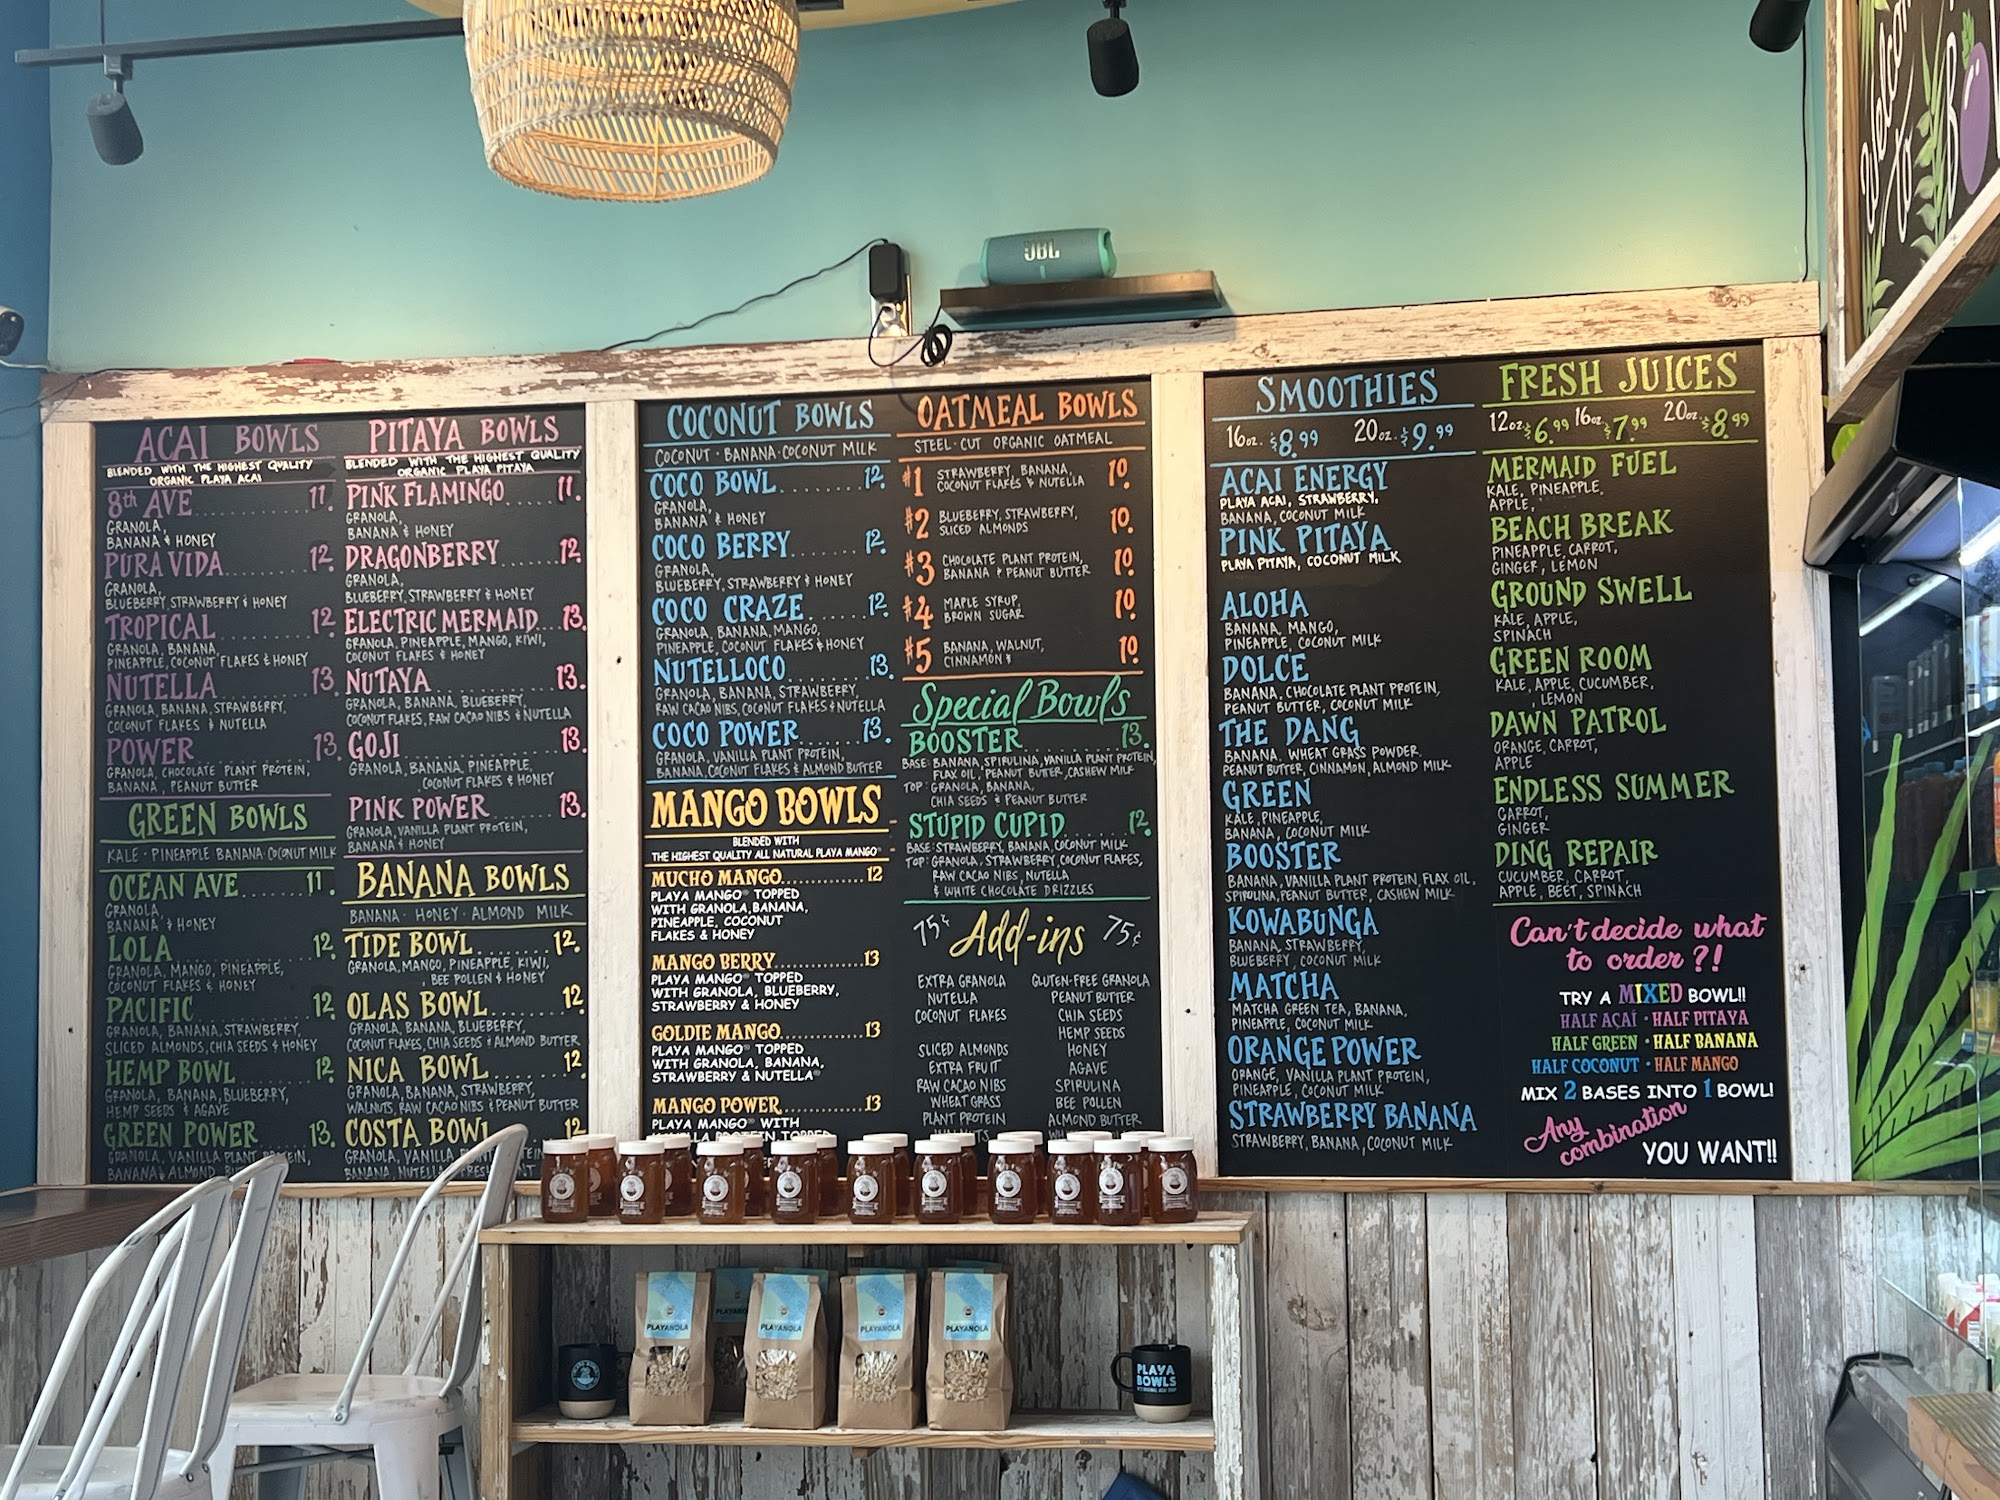 JBL
Welcome
to
ACAI BOWLS
BLENDED WITH THE HIGHEST QUALITY
ORGANIC PLAYA ACAI
8th AVE 11.
GRANOLA,
BANANA & HONEY
PURA VIDA 12.
GRANOLA,
BLUEBERRY, STRAWBERRY & HONEY
TROPICAL 12.
GRANOLA, BANANA,
PINEAPPLE, COCONUT FLAKES & HONEY
NUTELLA 13.
GRANOLA, BANANA, STRAWBERRY,
COCONUT FLAKES & NUTELLA
POWER 13.
GRANOLA, CHOCOLATE PLANT PROTEIN,
BANANA, PEANUT BUTTER
GREEN BOWLS
KALE · PINEAPPLE BANANA · COCONUT MILK
OCEAN AVE 11.
GRANOLA,
BANANA & HONEY
LOLA 12.
GRANOLA, MANGO, PINEAPPLE,
COCONUT FLAKES & HONEY
PACIFIC 12.
GRANOLA, BANANA, STRAWBERRY,
SLICED ALMONDS, CHIA SEEDS & HONEY
HEMP BOWL 12.
GRANOLA, BANANA, BLUEBERRY,
HEMP SEEDS & AGAVE
GREEN POWER 13.
GRANOLA, VANILLA PLANT PROTEIN,
BANANA & ALMOND
PITAYA BOWLS
BLENDED WITH THE HIGHEST QUALITY
ORGANIC PLAYA PITAYA
PINK FLAMINGO 11.
GRANOLA,
BANANA & HONEY
DRAGONBERRY 12.
GRANOLA,
BLUEBERRY, STRAWBERRY & HONEY
ELECTRIC MERMAID 13.
GRANOLA, PINEAPPLE, MANGO, KIWI,
COCONUT FLAKES & HONEY
NUTAYA 13.
GRANOLA, BANANA, BLUEBERRY,
COCONUT FLAKES, RAW CACAO NIBS & NUTELLA
GOJI 13.
GRANOLA, BANANA, PINEAPPLE,
, COCONUT FLAKES & HONEY
PINK POWER 13.
GRANOLA, VANILLA PLANT PROTEIN,
BANANA & HONEY
BANANA BOWLS
BANANA · HONEY · ALMOND MILK
TIDE BOWL 12.
GRANOLA, MANGO, PINEAPPLE, KIWI,
, BEE POLLEN & HONEY
OLAS BOWL 12.
GRANOLA, BANANA, BLUEBERRY,
COCONUT FLAKES, CHIA SEEDS & ALMOND BUTTER
NICA BOWL 12.
GRANOLA, BANANA, STRAWBERRY,
WALNUTS, RAW CACAO NIBS & PEANUT BUTTER
COSTA BOWL 12
GRANOLA, VANILLA
BANANA, NUTELLA
COCONUT BOWLS
COCONUT · BANANA · COCONUT MILK
COCO BOWL 12.
GRANOLA,
BANANA & HONEY
COCO BERRY 12.
GRANOLA,
BLUEBERRY, STRAWBERRY & HONEY
COCO CRAZE 12.
GRANOLA, BANANA, MANGO,
PINEAPPLE, COCONUT FLAKES & HONEY
NUTELLOCO 13.
GRANOLA, BANANA, STRAWBERRY,
RAW CACAO NIBS, COCONUT FLAKES & NUTELLA
COCO POWER 13.
GRANOLA, VANILLA PLANT PROTEIN,
BANANA, COCONUT FLAKES & ALMOND BUTTER
MANGO BOWLS
BLENDED WITH
THE HIGHEST QUALITY ALL NATURAL PLAYA MANGO®
MUCHO MANGO 12
PLAYA MANGO® TOPPED
WITH GRANOLA, BANANA,
PINEAPPLE, COCONUT
FLAKES & HONEY
MANGO BERRY 13
PLAYA MANGO® TOPPED
WITH GRANOLA, BLUEBERRY,
STRAWBERRY & HONEY
GOLDIE MANGO 13
PLAYA MANGO® TOPPED
WITH GRANOLA, BANANA,
STRAWBERRY & NUTELLA®
MANGO POWER 13
PLAYA MANGO® WITH
VANILLA PROTEIN TOPPED
OATMEAL BOWLS
STEEL-CUT ORGANIC OATMEAL
#1 STRAWBERRY, BANANA, 10.
COCONUT FLAKES & NUTELLA
#2 BLUEBERRY, STRAWBERRY, 10.
SLICED ALMONDS
#3 CHOCOLATE PLANT PROTEIN, 10.
BANANA & PEANUT BUTTER
#4 MAPLE SYRUP, 10.
BROWN SUGAR
#5 BANANA, WALNUT, 10.
CINNAMON &
Special Bowls
BOOSTER 13.
BASE: BANANA, SPIRULINA, VANILLA PLANT PROTEIN,
FLAX OIL, PEANUT BUTTER, CASHEW MILK
TOP: GRANOLA, BANANA,
CHIA SEEDS & PEANUT BUTTER
STUPID CUPID 12.
BASE: STRAWBERRY, BANANA, COCONUT MILK
TOP: GRANOLA, STRAWBERRY, COCONUT FLAKES,
RAW CACAO NIBS, NUTELLA
& WHITE CHOCOLATE DRIZZLES
75¢ Add-ins 75¢
EXTRA GRANOLA GLUTEN-FREE GRANOLA
NUTELLA PEANUT BUTTER
COCONUT FLAKES CHIA SEEDS
HEMP SEEDS
SLICED ALMONDS HONEY
EXTRA FRUIT AGAVE
RAW CACAO NIBS SPIRULINA
WHEAT GRASS BEE POLLEN
PLANT PROTEIN ALMOND BUTTER
SMOOTHIES
16oz. $8.99 20oz. $9.99
ACAI ENERGY
PLAYA ACAI, STRAWBERRY,
BANANA, COCONUT MILK
PINK PITAYA
PLAYA PITAYA, COCONUT MILK
ALOHA
BANANA, MANGO,
PINEAPPLE, COCONUT MILK
DOLCE
BANANA, CHOCOLATE PLANT PROTEIN,
PEANUT BUTTER, COCONUT MILK
THE DANG
BANANA, WHEAT GRASS POWDER,
PEANUT BUTTER, CINNAMON, ALMOND MILK
GREEN
KALE, PINEAPPLE,
BANANA, COCONUT MILK
BOOSTER
BANANA, VANILLA PLANT PROTEIN, FLAX OIL,
SPIRULINA, PEANUT BUTTER, CASHEW MILK
KOWABUNGA
BANANA, STRAWBERRY,
BLUEBERRY, COCONUT MILK
MATCHA
MATCHA GREEN TEA, BANANA,
PINEAPPLE, COCONUT MILK
ORANGE POWER
ORANGE, VANILLA PLANT PROTEIN,
PINEAPPLE, COCONUT MILK
STRAWBERRY BANANA
STRAWBERRY, BANANA, COCONUT MILK
FRESH JUICES
12oz. $6.99 16oz. $7.99 20oz. $8.99
MERMAID FUEL
KALE, PINEAPPLE,
APPLE,
BEACH BREAK
PINEAPPLE, CARROT,
GINGER, LEMON
GROUND SWELL
KALE, APPLE,
SPINACH
GREEN ROOM
KALE, APPLE, CUCUMBER,
, LEMON
DAWN PATROL
ORANGE, CARROT,
APPLE
ENDLESS SUMMER
CARROT,
GINGER
DING REPAIR
CUCUMBER, CARROT,
APPLE, BEET, SPINACH
Can't decide what
to order?!
TRY A MIXED BOWL!!
HALF AÇAÍ · HALF PITAYA
HALF GREEN · HALF BANANA
HALF COCONUT · HALF MANGO
MIX 2 BASES INTO 1 BOWL!
Any
combination
YOU WANT!!
PLAYANOLA
PLAYANOLA
PLAYANOLA
PLAYANOLA
PLAYANOLA
PLAYA
BOWLS